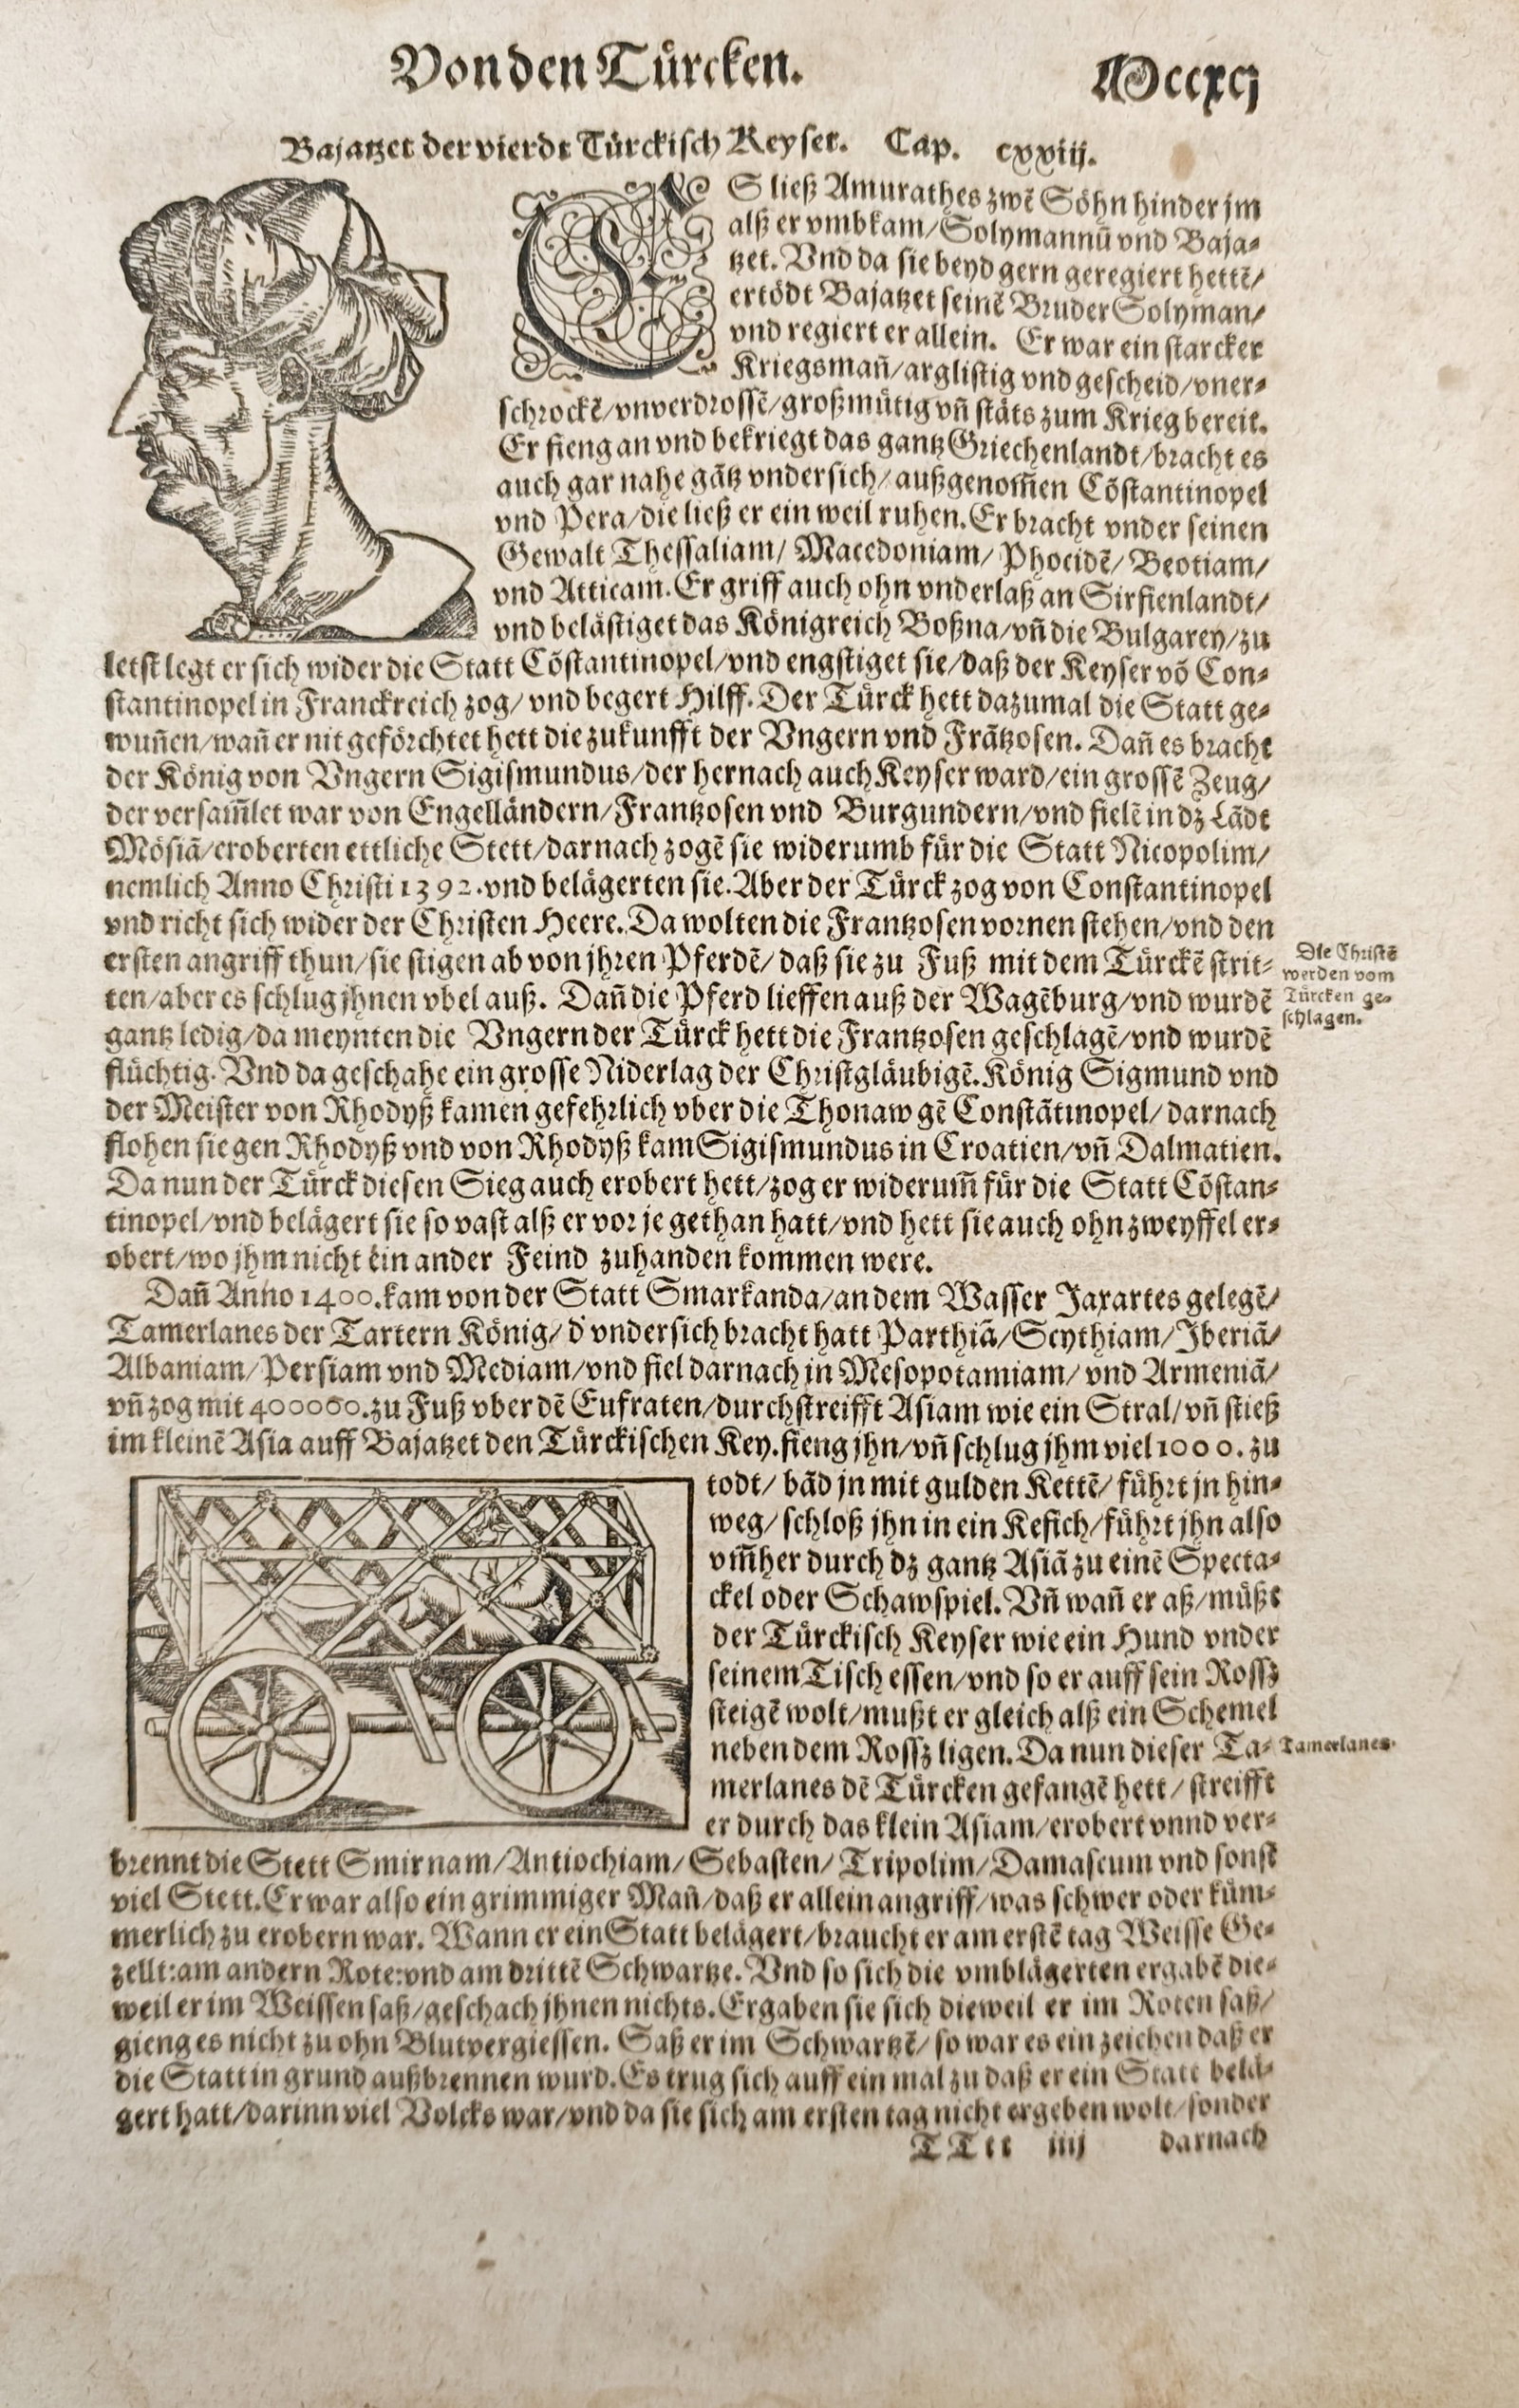 Von den Tűrcken. Mccxcj
Bajatzet der vierdt Tűrckisch Keyser. Cap. cxxiij.
ES ließ Amurathes zwẽ Sőhn hinder jm
alß er vmbkam/Solymannũ vnd Baja-
tzet. Vnd da sie beyd gern geregiert hettẽ/
ertődt Bajatzet seinẽ Bruder Solyman/
vnd regiert er allein. Er war ein starcker
Kriegsmañ/arglistig vnd gescheid/vner-
schrockẽ/vnverdrossẽ/großműtig vñ ståts zum Krieg bereit.
Er fieng an vnd bekriegt das gantz Griechenlandt/bracht es
auch gar nahe gãtz vndersich/außgenom̃en Cõstantinopel
vnd Pera/die ließ er ein weil ruhen. Er bracht vnder seinen
Gewalt Thessaliam/ Macedoniam/ Phocidẽ/ Beotiam/
vnd Atticam. Er griff auch ohn vnderlaß an Sirfienlandt/
vnd belåstiget das Kőnigreich Boßna/vñ die Bulgarey/zu
letst legt er sich wider die Statt Cõstantinopel/vnd engstiget sie/daß der Keyser võ Con-
stantinopel in Franckreich zog/ vnd begert Hilff. Der Tűrck hett dazumal die Statt ge-
wuñen/wañ er nit gefőrchtet hett die zukunfft der Vngern vnd Frãtzosen. Dañ es bracht
der Kőnig von Vngern Sigismundus/der hernach auch Keyser ward/ein grossẽ Zeug/
der versam̃let war von Engellåndern/Frantzosen vnd Burgundern/vnd fielẽ in dz Lãdt
Mősiã/eroberten ettliche Stett/darnach zogẽ sie widerumb fűr die Statt Nicopolim/
nemlich Anno Christi 1392. vnd belågerten sie. Aber der Tűrck zog von Constantinopel
vnd richt sich wider der Christen Heere. Da wolten die Frantzosen vornen stehen/vnd den
ersten angriff thun/sie stigen ab von jhren Pferdẽ/ daß sie zu Fuß mit dem Tűrckẽ strit-
ten/aber es schlug jhnen vbel auß. Dañ die Pferd lieffen auß der Wagẽburg/vnd wurdẽ
gantz ledig/da meynten die Vngern der Tűrck hett die Frantzosen geschlagẽ/vnd wurdẽ
flűchtig. Vnd da geschahe ein grosse Niderlag der Christglåubigẽ. Kőnig Sigmund vnd
der Meister von Rhodyß kamen gefehrlich vber die Thonaw gẽ Constãtinopel/ darnach
flohen sie gen Rhodyß vnd von Rhodyß kam Sigismundus in Croatien/vñ Dalmatien.
Da nun der Tűrck diesen Sieg auch erobert hett/zog er widerum̃ fűr die Statt Cõstan-
tinopel/vnd belågert sie so vast alß er vor je gethan hatt/vnd hett sie auch ohn zweyffel er-
obert/wo jhm nicht ein ander Feind zuhanden kommen were.
Die Christẽ
werden vom
Tűrcken ge-
schlagen.
Dañ Anno 1400. kam von der Statt Smarkanda/an dem Wasser Jaxartes gelegẽ/
Tamerlanes der Tartern Kőnig/ d' vndersich bracht hatt Parthiã/Scythiam/Iberiã/
Albaniam/Persiam vnd Mediam/vnd fiel darnach in Mesopotamiam/ vnd Armeniã/
vñ zog mit 400000. zu Fuß vber dẽ Eufraten/durchstreifft Asiam wie ein Stral/vñ stieß
im kleinẽ Asia auff Bajatzet den Tűrckischen Key. fieng jhn/vñ schlug jhm viel 1000. zu
todt/ bãd jn mit gulden Kettẽ/ fűhrt jn hin-
weg/ schloß jhn in ein Kefich/fűhrt jhn also
vm̃her durch dz gantz Asiã zu einẽ Specta-
ckel oder Schawspiel. Vñ wañ er aß/műßt
der Tűrckisch Keyser wie ein Hund vnder
seinem Tisch essen/vnd so er auff sein Rossz
steigẽ wolt/mußt er gleich alß ein Schemel
neben dem Rossz ligen. Da nun dieser Ta-
merlanes dẽ Tűrcken gefangẽ hett/ streifft
er durch das klein Asiam/erobert vnnd ver-
Tamerlanes.
brennt die Stett Smirnam/Antiochiam/Sebasten/Tripolim/Damascum vnd sonst
viel Stett. Er war also ein grimmiger Mañ/daß er allein angriff/was schwer oder kűm-
merlich zu erobern war. Wann er ein Statt belågert/braucht er am erstẽ tag Weisse Ge-
zellt: am andern Rote: vnd am drittẽ Schwartze. Vnd so sich die vmblågerten ergabẽ die-
weil er im Weissen saß/geschach jhnen nichts. Ergaben sie sich dieweil er im Roten saß/
gieng es nicht zu ohn Blutvergiessen. Saß er im Schwartzẽ/ so war es ein zeichen daß er
die Statt in grund außbrennen wurd. Es trug sich auff ein mal zu daß er ein Statt belå-
gert hatt/darinn viel Volcks war/vnd da sie sich am ersten tag nicht ergeben wolt/sonder
TTtt iiij darnach